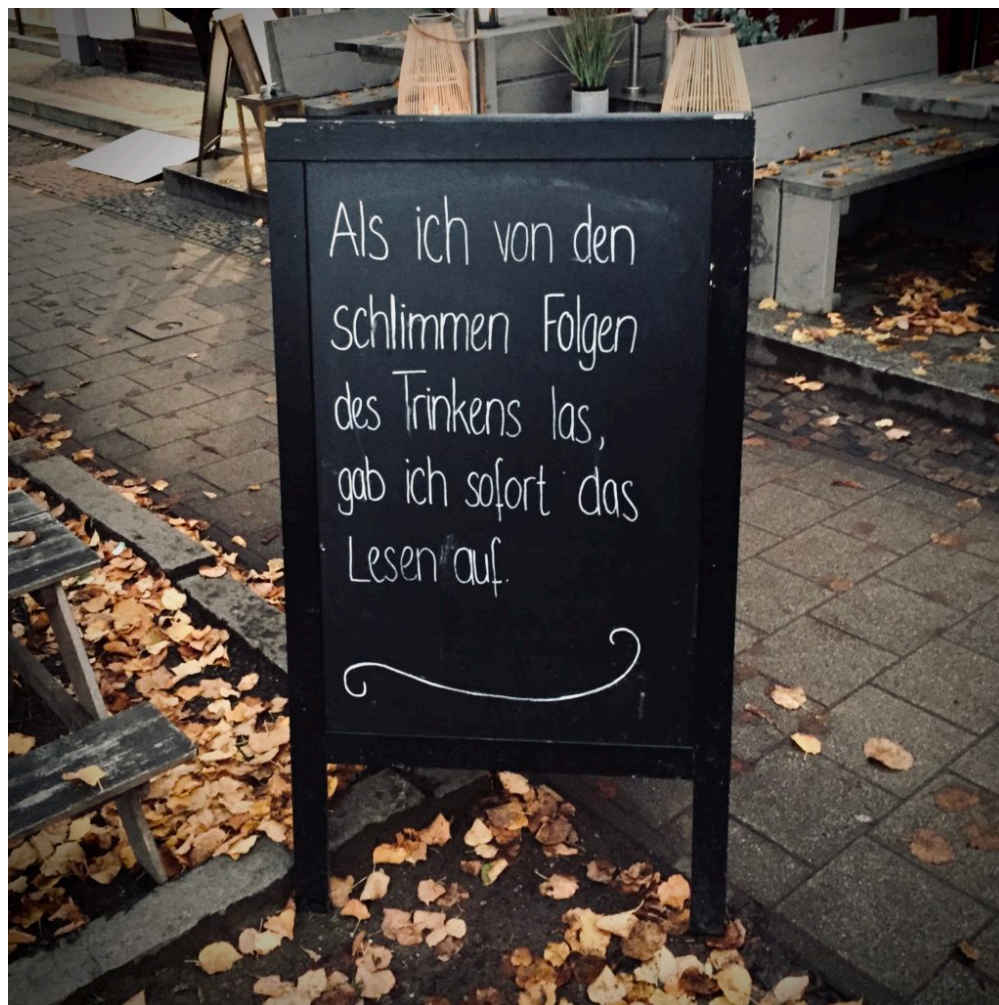 Als ich von den
schlimmen Folgen
des Trinkens las,
gab ich sofort das
Lesen auf.